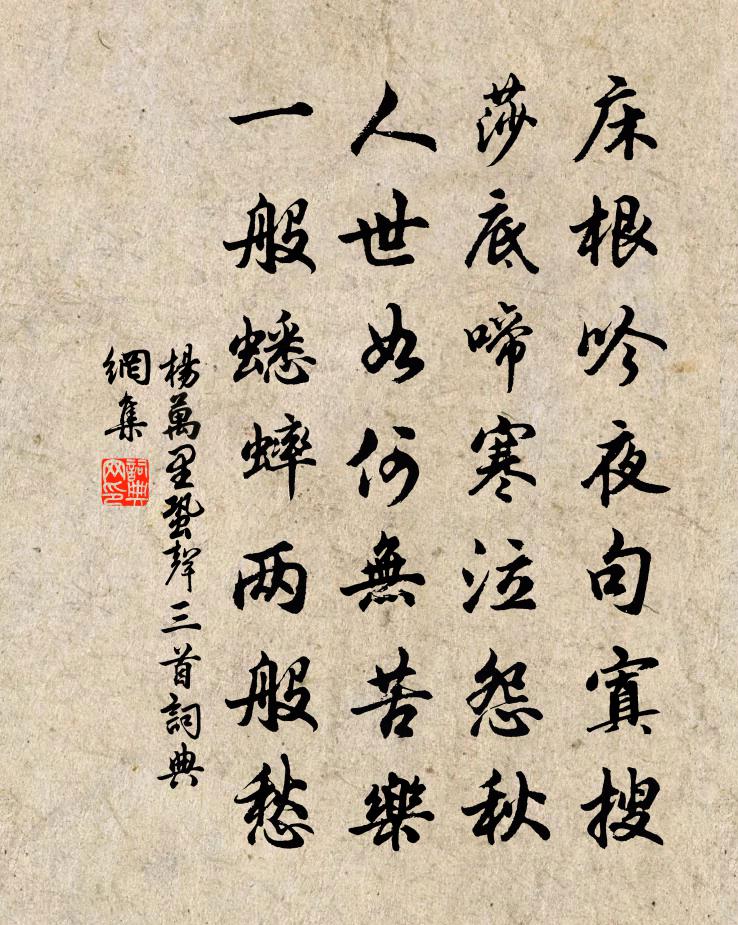 床根吟夜句冥搜
莎底啼寒泣怨秋
人世如何無苦樂
一般蟋蟀两般愁
楊萬里蛩聲三首詞典
網集
詞典
网印